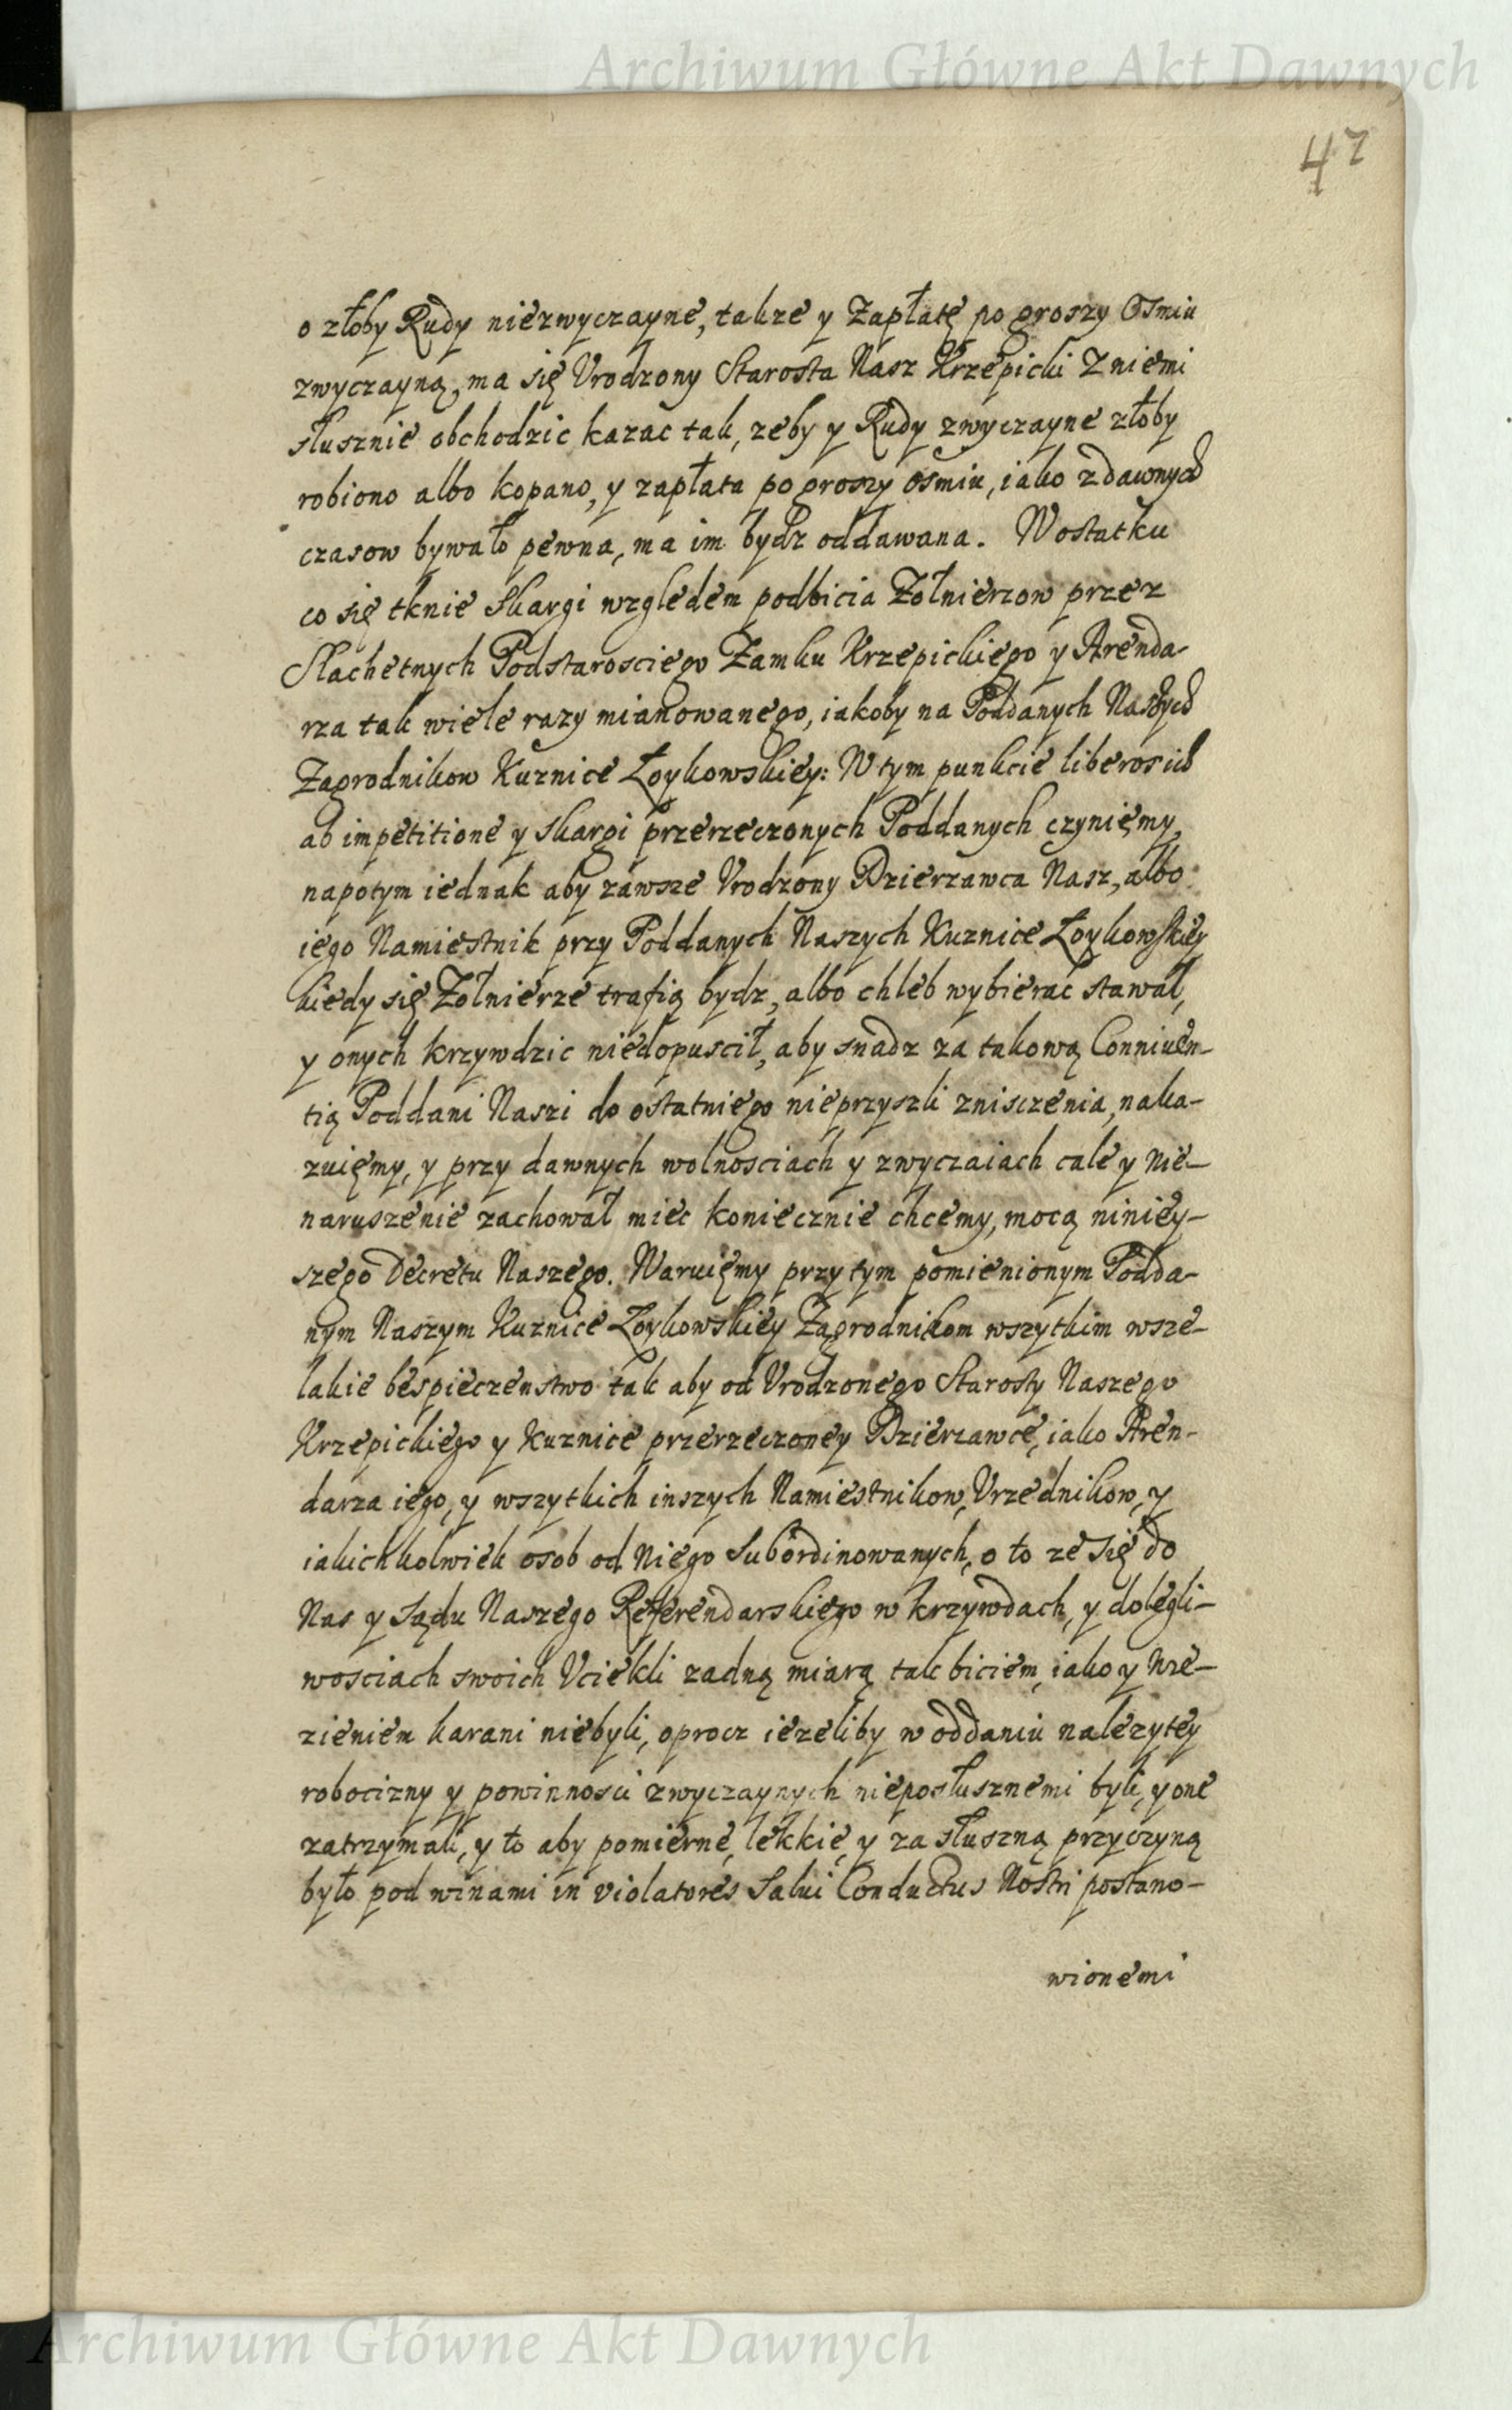 Archiwum Główne Akt Dawnych
47
o złoby Rudy niezwyczayne, takze y Zapłatę po groszy Osmiu
zwyczayną, ma się Vrodzony Starosta Nasz Krzepicki Z niemi
słusznie obchodzic kazac tak, zeby y Rudy zwyczayne złoby
robiono albo kopano, y zapłata po groszy osmiu, iako z dawnych
czasow bywało pewna, ma im bydz oddawana. W ostatku
co się tknie Skargi względem podbicia Zołnierzow przez
Slachetnych Podstarosciego Zamku Krzepickiego y Arenda-
rza tak wiele razy mianowanego, iakoby na Poddanych Naszych
Zagrodnikow Kuznice Łoykowskiey: W tym punkcie liberos ich
ab impetitione y skargi przerzeczonych Poddanych czynięmy,
napotym iednak aby zawsze Vrodzony Dzierzawca Nasz, albo
iego Namiestnik przy Poddanych Naszych Kuznice Łoykowskiey
kiedy się Zołnierze trafią bydz, albo chleb wybierac stawał,
y onych krzywdzic niedopuscił, aby snadz za takową Conniuen-
tią Poddani Naszi do ostatniego nieprzyszli znisczenia, naka-
zuięmy, y przy dawnych wolnosciach y zwyczaiach cale y nie-
naruszenie zachował miec koniecznie chcemy, mocą niniey-
szego Decretu Naszego. Waruięmy przy tym pomienionym Podda-
nym Naszym Kuznice Łoykowskiey Zagrodnikom wszytkim wsze-
lakie bespieczenstwo tak aby od Vrodzonego Starosty Naszego
Krzepickiego y Kuznice przerzeczoney Dzierzawce, iako Aren-
darza iego, y wszytkich inszych Namiestnikow, Vrzednikow, y
iakichkolwiek osob od Niego Subordinowanych, o to ze się do
Nas y Sądu Naszego Referendarskiego w krzywdach, y dolegli-
wosciach swoich Vciekli zadną miarą tak biciem, iako y wie-
zieniem karani niebyli, oprocz iezeliby w oddaniu nalezytey
robocizny y powinnosci zwyczaynych nieposłusznemi byli, y one
zatrzymali, y to aby pomierne, lekkie, y za słuszną przyczyną
było pod winami in violatores Salui Conductus Nostri postano-
wionemi
Archiwum Główne Akt Dawnych